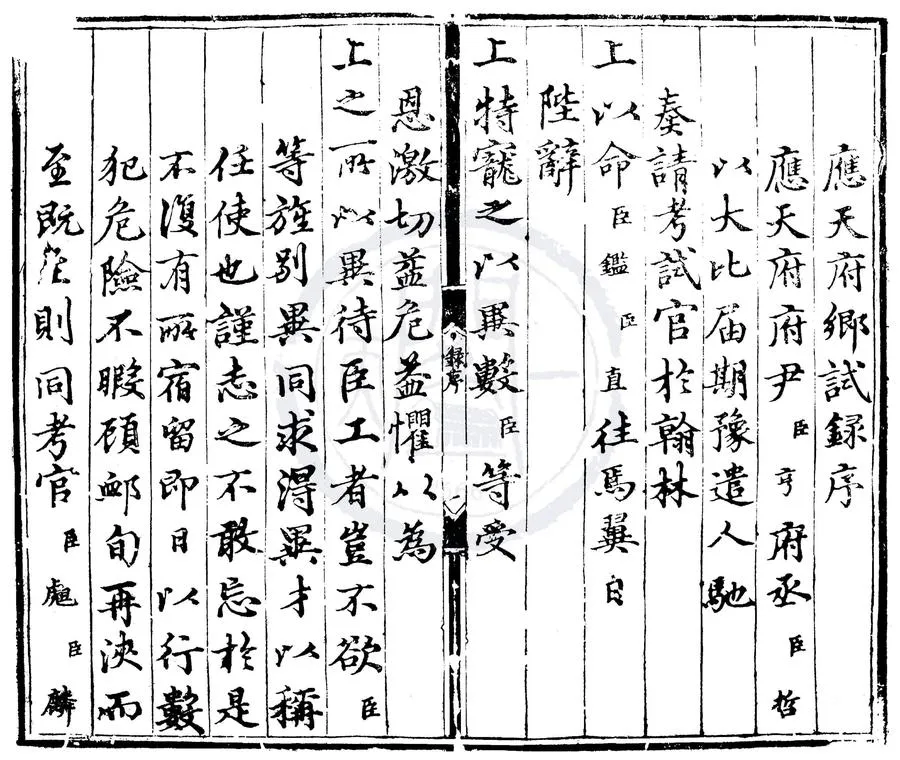 應天府鄉試録序
應天府府尹臣亨府丞臣哲
以大比届期豫遣人馳
奏請考試官於翰林
上以命臣鑑臣直往焉翼日
陛辭
上特寵之以異數臣等受
録序
一
恩激切益危益懼以為
上之所以異待臣工者豈不欲臣
等旌别異同求得異才以稱
任使也謹志之不敢忘於是
不復有所宿留即日以行數
犯危險不暇顧卹旬再浹而
至既則同考官臣臣麟